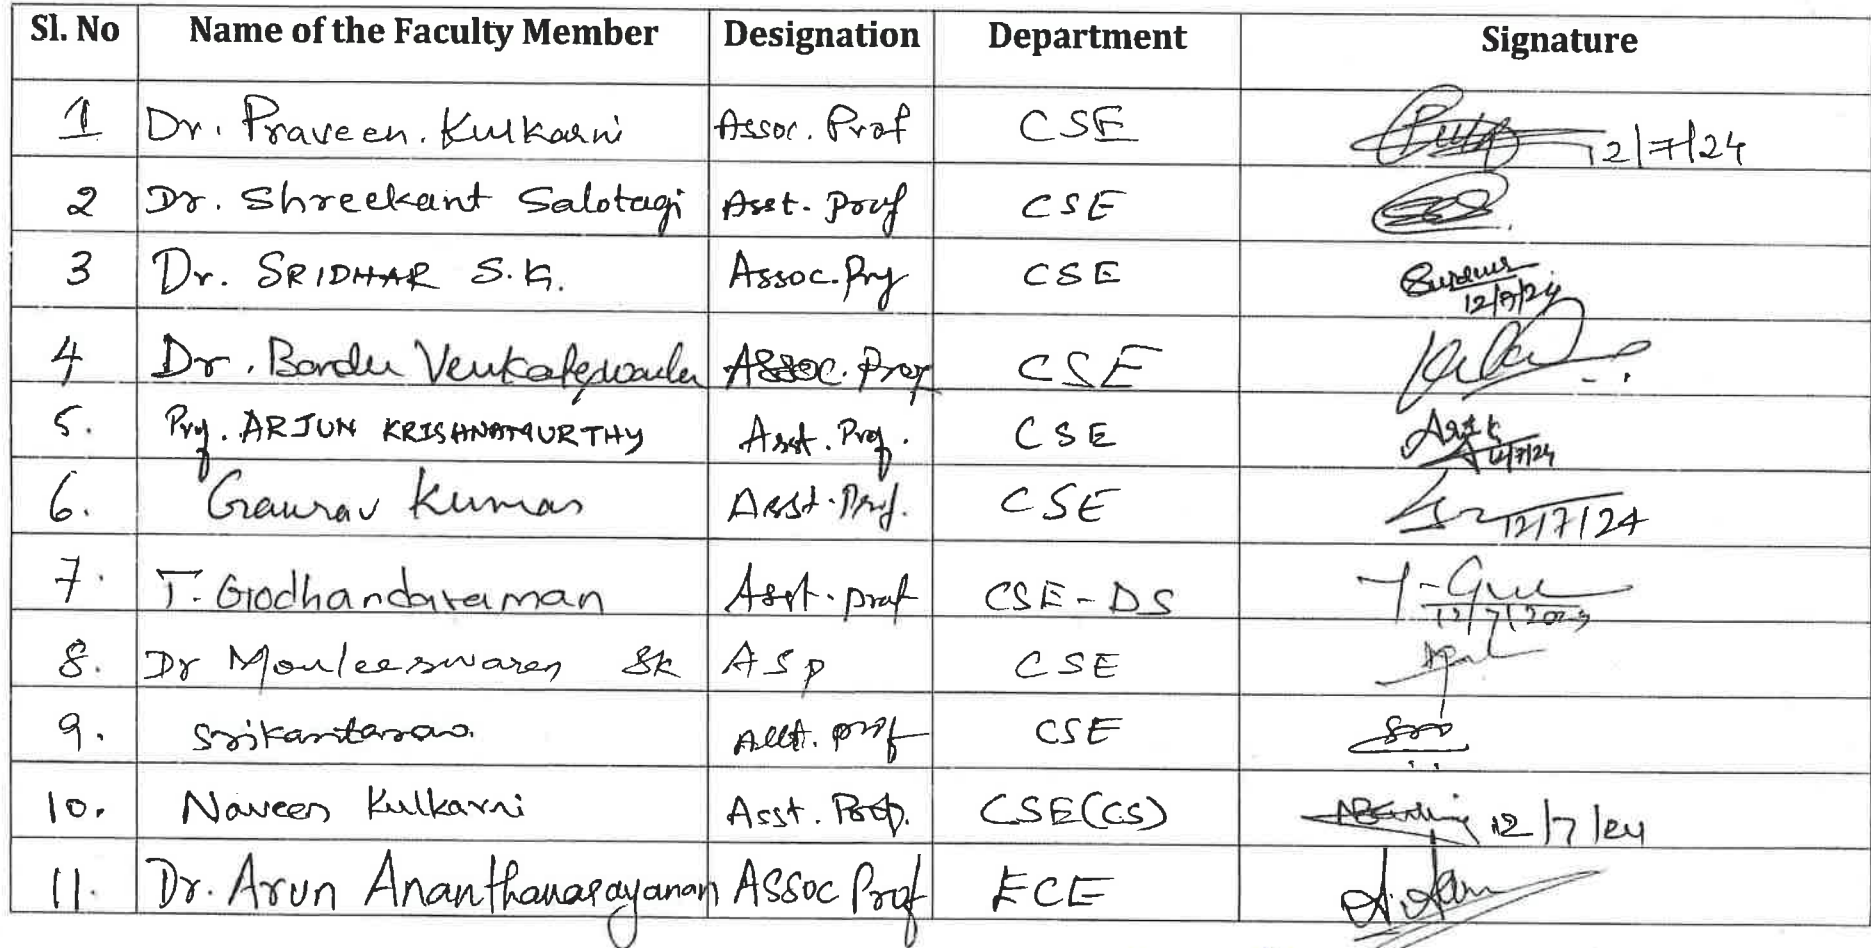 Sl. No Name of the Faculty Member Designation Department Signature
1 Dr. Praveen. Kulkarni Assoc. Prof CSE 12/7/24
2 Dr. Shreekant Salotagi Asst. Prof CSE
3 Dr. SRIDHAR S.K. Assoc. Prof CSE 12/7/24
4 Dr. Bondu Venkateswarlu Assoc. Prof CSE
5. Prof. ARJUN KRISHNAMURTHY Asst. Prof. CSE 12/7/24
6. Gaurav Kumar Asst. Prof. CSE 12/7/24
7. T. Godhandaraman Asst. Prof CSE-DS
8. Dr Mouleeswaran SK ASP CSE
9. Srikantarao Asst. Prof CSE
10. Naveen Kulkarni Asst. Prof. CSE(CS) 12/7/24
11. Dr. Arun Ananthanarayanan Assoc Prof ECE